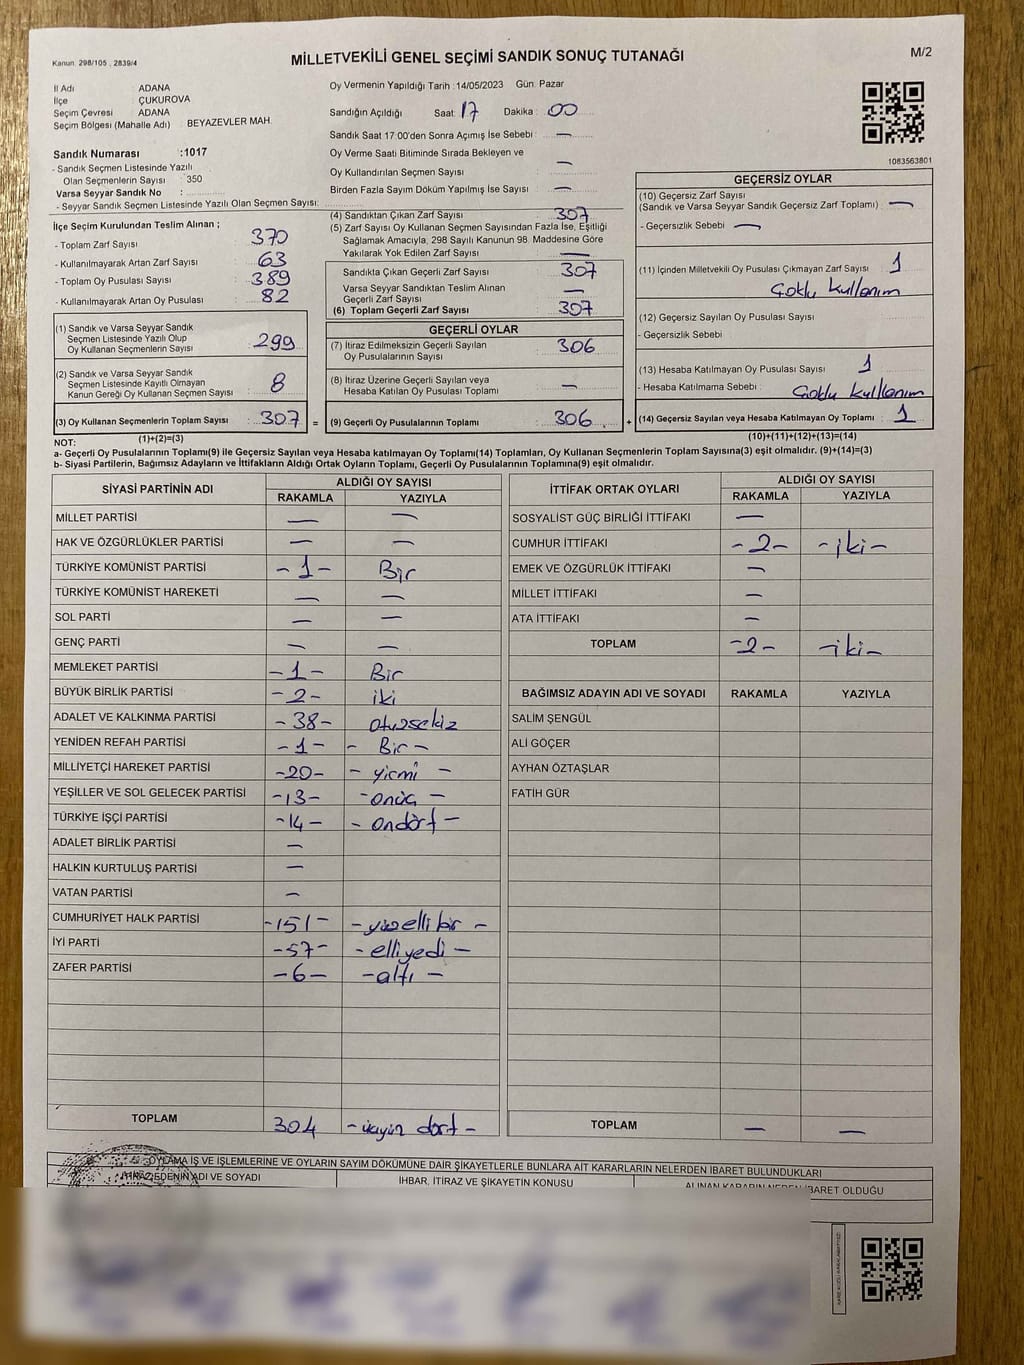 Kanun: 298/105 , 2839/4
MİLLETVEKİLİ GENEL SEÇİMİ SANDIK SONUÇ TUTANAĞI
M/2
İl Adı ADANA
İlçe ÇUKUROVA
Seçim Çevresi ADANA
Seçim Bölgesi (Mahalle Adı) BEYAZEVLER MAH.
Oy Vermenin Yapıldığı Tarih :14/05/2023 Gün: Pazar
Sandığın Açıldığı Saat: 17 Dakika : 00
Sandık Saat 17:00'den Sonra Açımış İse Sebebi : —
Oy Verme Saati Bitiminde Sırada Bekleyen ve
Oy Kullandırılan Seçmen Sayısı —
Birden Fazla Sayım Döküm Yapılmış İse Sayısı : —
1083563801
Sandık Numarası :1017
- Sandık Seçmen Listesinde Yazılı
Olan Seçmenlerin Sayısı : 350
Varsa Seyyar Sandık No :
- Seyyar Sandık Seçmen Listesinde Yazılı Olan Seçmen Sayısı:
İlçe Seçim Kurulundan Teslim Alınan ;
- Toplam Zarf Sayısı : 370
- Kullanılmayarak Artan Zarf Sayısı : 63
- Toplam Oy Pusulası Sayısı : 389
- Kullanılmayarak Artan Oy Pusulası : 82
(1) Sandık ve Varsa Seyyar Sandık
Seçmen Listesinde Yazılı Olup
Oy Kullanan Seçmenlerin Sayısı : 299
(2) Sandık ve Varsa Seyyar Sandık
Seçmen Listesinde Kayıtlı Olmayan
Kanun Gereği Oy Kullanan Seçmen Sayısı : 8
(3) Oy Kullanan Seçmenlerin Toplam Sayısı : 307 =
(1)+(2)=(3)
(4) Sandıktan Çıkan Zarf Sayısı : 307
(5) Zarf Sayısı Oy Kullanan Seçmen Sayısından Fazla İse, Eşitliği
Sağlamak Amacıyla, 298 Sayılı Kanunun 98. Maddesine Göre
Yakılarak Yok Edilen Zarf Sayısı : —
Sandıkta Çıkan Geçerli Zarf Sayısı : 307
Varsa Seyyar Sandıktan Teslim Alınan
Geçerli Zarf Sayısı : —
(6) Toplam Geçerli Zarf Sayısı : 307
GEÇERLİ OYLAR
(7) İtiraz Edilmeksizin Geçerli Sayılan
Oy Pusulalarının Sayısı : 306
(8) İtiraz Üzerine Geçerli Sayılan veya
Hesaba Katılan Oy Pusulası Toplamı : —
(9) Geçerli Oy Pusulalarının Toplamı : 306 +
GEÇERSİZ OYLAR
(10) Geçersiz Zarf Sayısı
(Sandık ve Varsa Seyyar Sandık Geçersiz Zarf Toplamı) : —
- Geçersizlik Sebebi : —
(11) İçinden Milletvekili Oy Pusulası Çıkmayan Zarf Sayısı : 1
Çoklu kullanım
(12) Geçersiz Sayılan Oy Pusulası Sayısı :
- Geçersizlik Sebebi :
(13) Hesaba Katılmayan Oy Pusulası Sayısı : 1
- Hesaba Katılmama Sebebi : Çoklu kullanım
(14) Geçersiz Sayılan veya Hesaba Katılmayan Oy Toplamı : 1
(10)+(11)+(12)+(13)=(14)
NOT:
a- Geçerli Oy Pusulalarının Toplamı(9) ile Geçersiz Sayılan veya Hesaba katılmayan Oy Toplamı(14) Toplamları, Oy Kullanan Seçmenlerin Toplam Sayısına(3) eşit olmalıdır. (9)+(14)=(3)
b- Siyasi Partilerin, Bağımsız Adayların ve İttifakların Aldığı Ortak Oyların Toplamı, Geçerli Oy Pusulalarının Toplamına(9) eşit olmalıdır.
SİYASİ PARTİNİN ADI ALDIĞI OY SAYISI
RAKAMLA YAZIYLA
MİLLET PARTİSİ — —
HAK VE ÖZGÜRLÜKLER PARTİSİ — —
TÜRKİYE KOMÜNİST PARTİSİ -1- Bir
TÜRKİYE KOMÜNİST HAREKETİ — —
SOL PARTİ — —
GENÇ PARTİ — —
MEMLEKET PARTİSİ -1- Bir
BÜYÜK BİRLİK PARTİSİ -2- iki
ADALET VE KALKINMA PARTİSİ -38- otuzsekiz
YENİDEN REFAH PARTİSİ -1- - Bir -
MİLLİYETÇİ HAREKET PARTİSİ -20- - yirmi -
YEŞİLLER VE SOL GELECEK PARTİSİ -13- -onüç -
TÜRKİYE İŞÇİ PARTİSİ -14- - ondört -
ADALET BİRLİK PARTİSİ —
HALKIN KURTULUŞ PARTİSİ —
VATAN PARTİSİ —
CUMHURİYET HALK PARTİSİ -151- - yüzelli bir -
İYİ PARTİ -57- - elliyedi -
ZAFER PARTİSİ -6- -altı -
TOPLAM 304 - üçyüz dört -
İTTİFAK ORTAK OYLARI ALDIĞI OY SAYISI
RAKAMLA YAZIYLA
SOSYALİST GÜÇ BİRLİĞİ İTTİFAKI —
CUMHUR İTTİFAKI -2- -iki-
EMEK VE ÖZGÜRLÜK İTTİFAKI —
MİLLET İTTİFAKI —
ATA İTTİFAKI —
TOPLAM -2- -iki-
BAĞIMSIZ ADAYIN ADI VE SOYADI RAKAMLA YAZIYLA
SALİM ŞENGÜL
ALİ GÖÇER
AYHAN ÖZTAŞLAR
FATİH GÜR
TOPLAM — —
OYLAMA İŞ VE İŞLEMLERİNE VE OYLARIN SAYIM DÖKÜMÜNE DAİR ŞİKAYETLERLE BUNLARA AİT KARARLARIN NELERDEN İBARET BULUNDUKLARI
İTİRAZ EDENİN ADI VE SOYADI İHBAR, İTİRAZ VE ŞİKAYETİN KONUSU ALINAN KARARIN NEDEN İBARET OLDUĞU